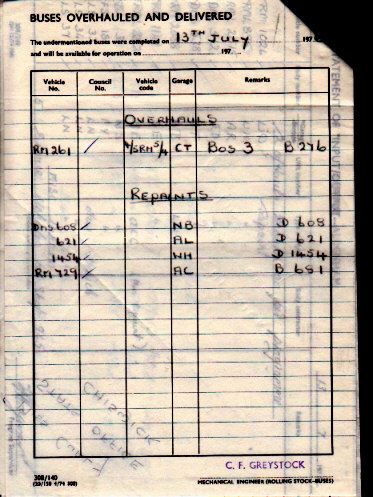 BUSES OVERHAULED AND DELIVERED
The undermentioned buses were completed on 13TH JULY 197
and will be available for operation on 197
Vehicle No. Council No. Vehicle code Garage Remarks
OVERHAULS
RM261 / CT BOS 3 B 276
REPAINTS
DMS608 / NB D 608
621 / AL D 621
1454 / WH D 1454
RM729 / AC B 681
308/140
C. F. GREYSTOCK
MECHANICAL ENGINEER (ROLLING STOCK-BUSES)